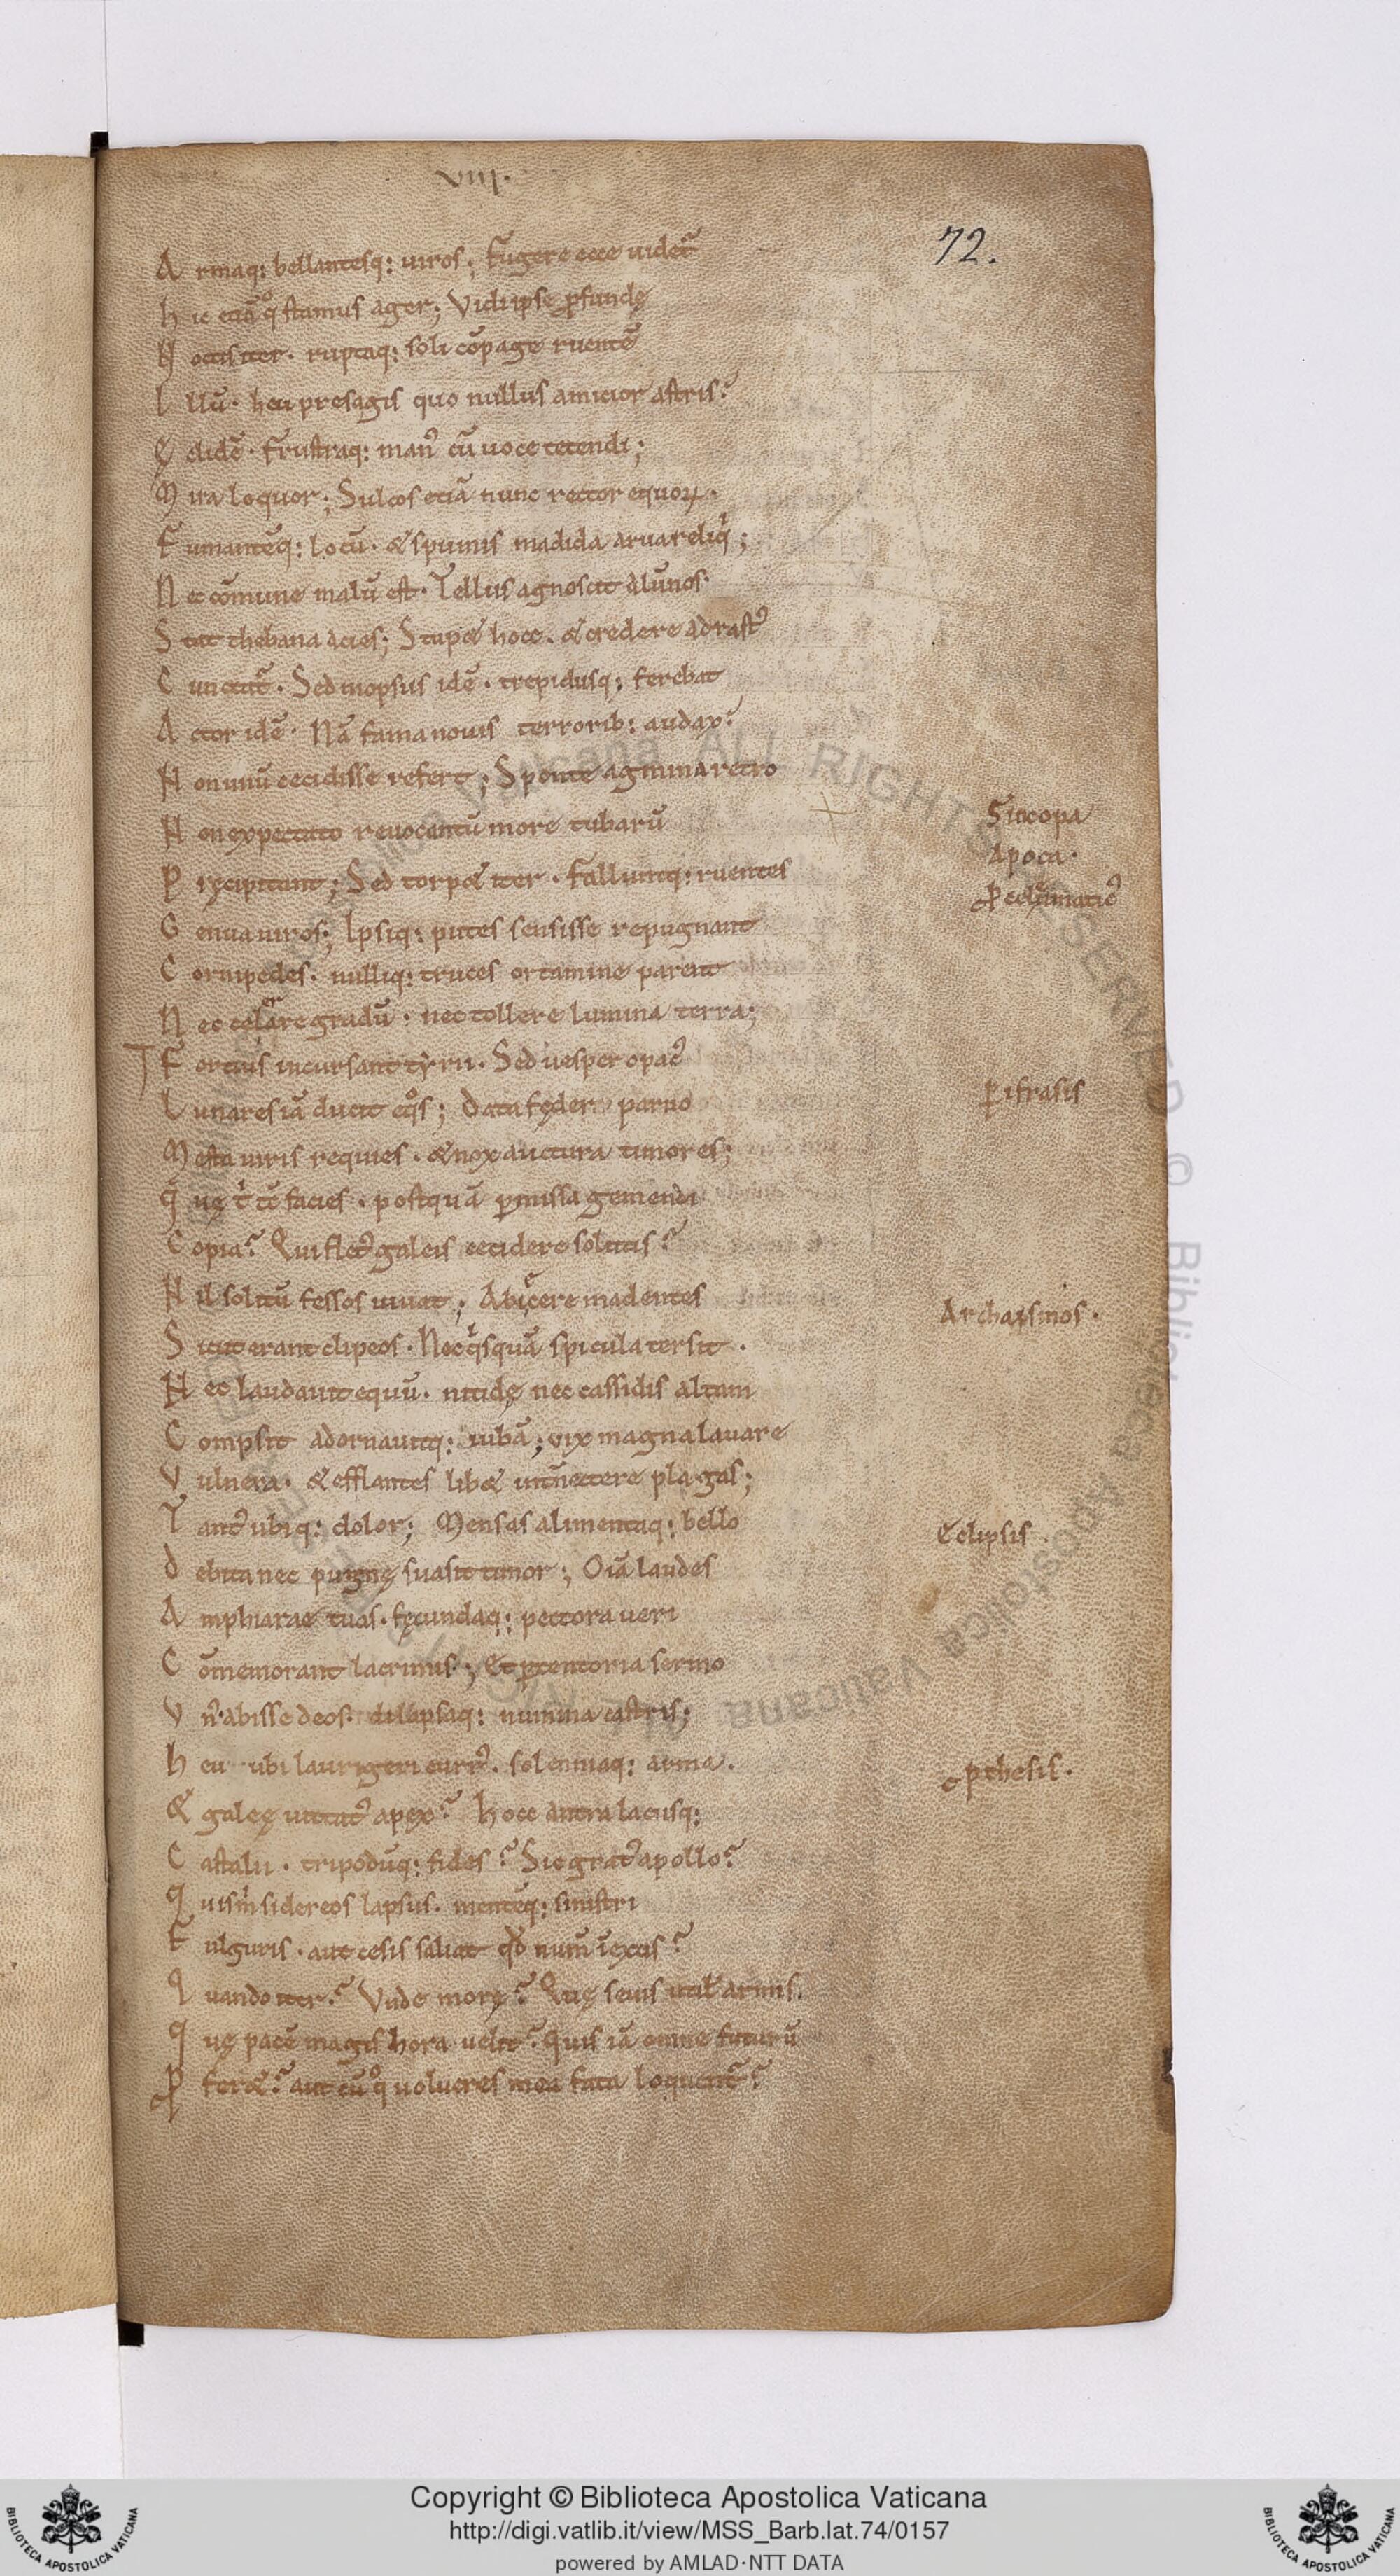 VIII.
72.
A rmaq; bellantesq; uiros; Fugere ecce uidet᷑
h ic etiā q̊ stamus ager; Vidi ipse ꝓfundę
N octis iter. ruptaq; soli cōpage ruentē
I llū. heu presagis quo nullus amicior astris?
Ę clidē. Frustraq; manꝰ cū uoce tetendi;
M ira loquor; Sulcos etiā nunc rector equoꝝ.
F umantēq; locū. & spumis madida arua reliq̇;
N ec cōmune malū est. Tellus agnoscit alūnos.
S tat thebana acies; Stupet hoce. & credere adrastꝰ
C unctat᷑. Sed mopsus idē. trepidusq; ferebat
A ctor idē. Nā fama nouis terrorib; audax?
N on unū cecidisse refert; Sponte agmina retro
N on expectato reuocantū more tubarū
P ręcipitant; Sed torpet iter. Falluntq; ruentes
G enua uiros; Ipsiq; putes sensisse repugnant
C ornipedes. nulliq; truces ortamine parent
N ec celerare gradū. nec tollere lumina terra;
F ortius incursant tyrii. Sed uesper opacꝰ
L unares iā ducit eq̊s; Data fędera paruo
M esta uiris requies. & nox auctura timores;
Q uę t̍ tc̄ facies. postquā ꝑmissa gemendi
C opia? Qui fletꝰ galeis cecidere solutis?
N il solitū fessos iuuat; Abiecere madentes
S icut erant clipeos. Nec q̇squā spicula tersit.
N ec laudauit equū. nitidę nec cassidis altam
C ompsit adornauitq; iubā; uix magna lauare
V ulnera. & efflantes libet int᷑nectere plagas;
T antꝰ ubiq; dolor; Mensas alimentaq; bello
D ebita nec pugnę suasit timor; Oīa laudes
A mphiarae tuas. fęcundaq; pectora ueri
C ōmemorant lacrimis; Et ꝑ tentoria sermo
V nꝰ. abisse deos. dilapsaq; numina castris;
h eu ubi laurigeri currꝰ. solenniaq; arma.
& galeę uittatꝰ apex? hoce antra lacusq;
C astalii. tripodūq; fides? Sic gratꝰ apollo?
Q uis m̍ sidereos lapsus. mentēq; sinistri
F ulguris. aut cesis saliat qd̄ num̄ īextis?
Q uando iter? Vnde morę? Quę seuis utilꝰ armis.
Q uę pacē magis hora uelit? Quis iā omne futurū
P feret? aut cū q̊ uolucres mea fata loquent᷑?
Sincopa
Apoca.
ꝓ celeumaticꝰ
ꝑifrasis
Archaismos.
Eclipsis.
epthesis.